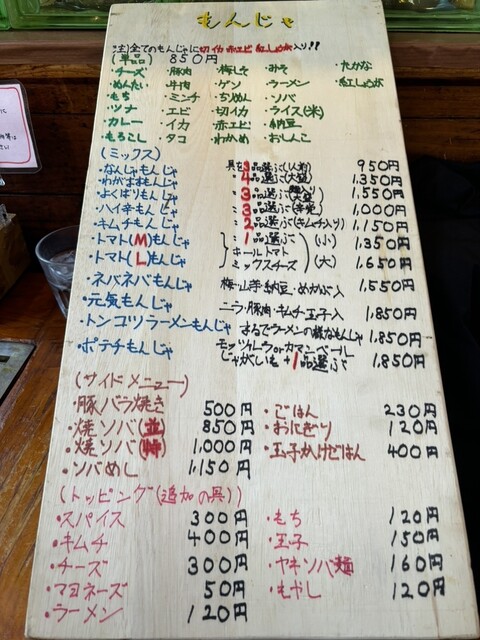 もんじゃ
注)全てのもんじゃに切イカ・赤エビ・紅しょうが入り!!
(単品) 850円
・チーズ ・豚肉 ・梅しそ ・みそ ・たかな
・めんたい ・牛肉 ・ゲソ ・ラーメン ・紅しょうが
・もち ・ミンチ ・ちりめん ・ソバ
・ツナ ・エビ ・切イカ ・ライス(米)
・カレー ・イカ ・赤エビ ・納豆
・もろこし ・タコ ・わかめ ・おしんこ
(ミックス)
・なんじゃもんじゃ 具を3品選ぶ 950円
・わがままもんじゃ 4品選ぶ(大盛) 1,350円
・よくばりもんじゃ 3品選ぶ 1,550円
・ハイ辛もんじゃ 3品選ぶ 1,000円
・キムチもんじゃ 2品選ぶ(キムチ入り) 1,150円
・トマト(M)もんじゃ 1品選ぶ (小) 1,350円
ホールトマト
・トマト(L)もんじゃ ミックスチーズ (大) 1,650円
・ネバネバもんじゃ 梅・山芋・納豆・めかぶ入 1,550円
・元気もんじゃ ニラ・豚肉・キムチ・玉子入 1,850円
・トンコツラーメンもんじゃ まるでラーメンの様なもんじゃ 1,850円
・ポテチもんじゃ モッツァレラorカマンベール
じゃがいも+1品選ぶ 1,850円
(サイドメニュー)
・豚バラ焼き 500円 ・ごはん 230円
・焼ソバ(並) 850円 ・おにぎり 120円
・焼ソバ(特) 1,000円 ・玉子かけごはん 400円
・ソバめし 1,150円
(トッピング(追加の具))
・スパイス 300円 ・もち 120円
・キムチ 400円 ・玉子 150円
・チーズ 300円 ・ヤキソバ麺 160円
・マヨネーズ 50円 ・もやし 120円
・ラーメン 120円